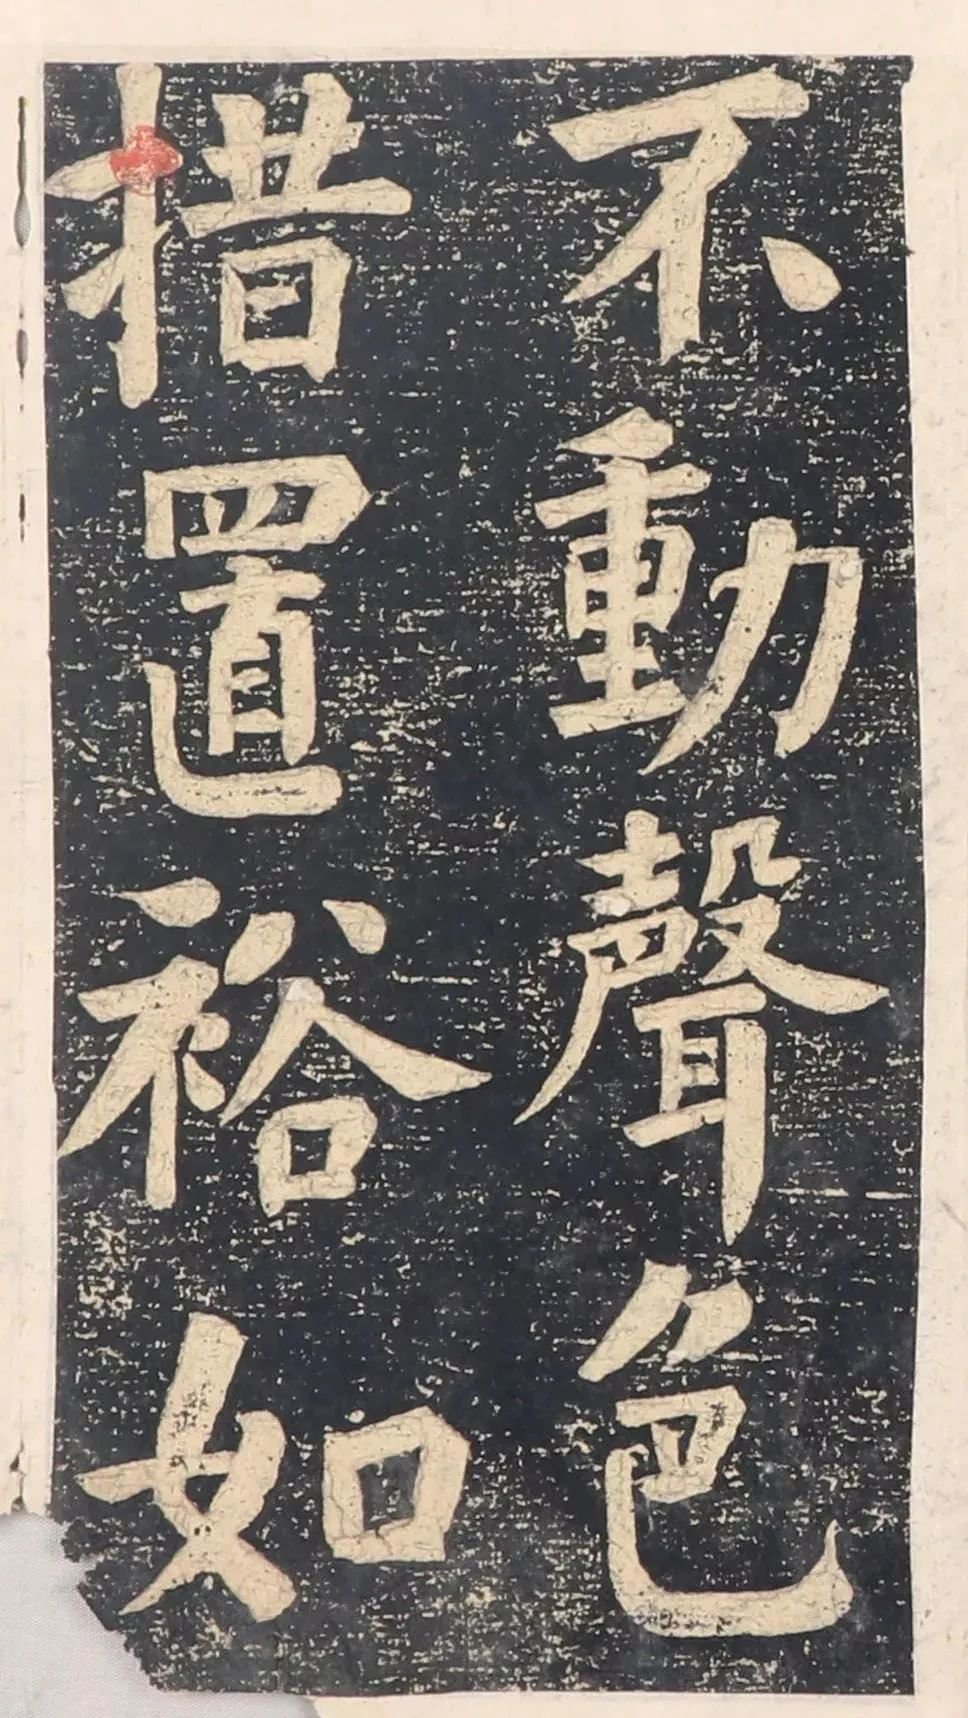 不動聲色
措置裕如